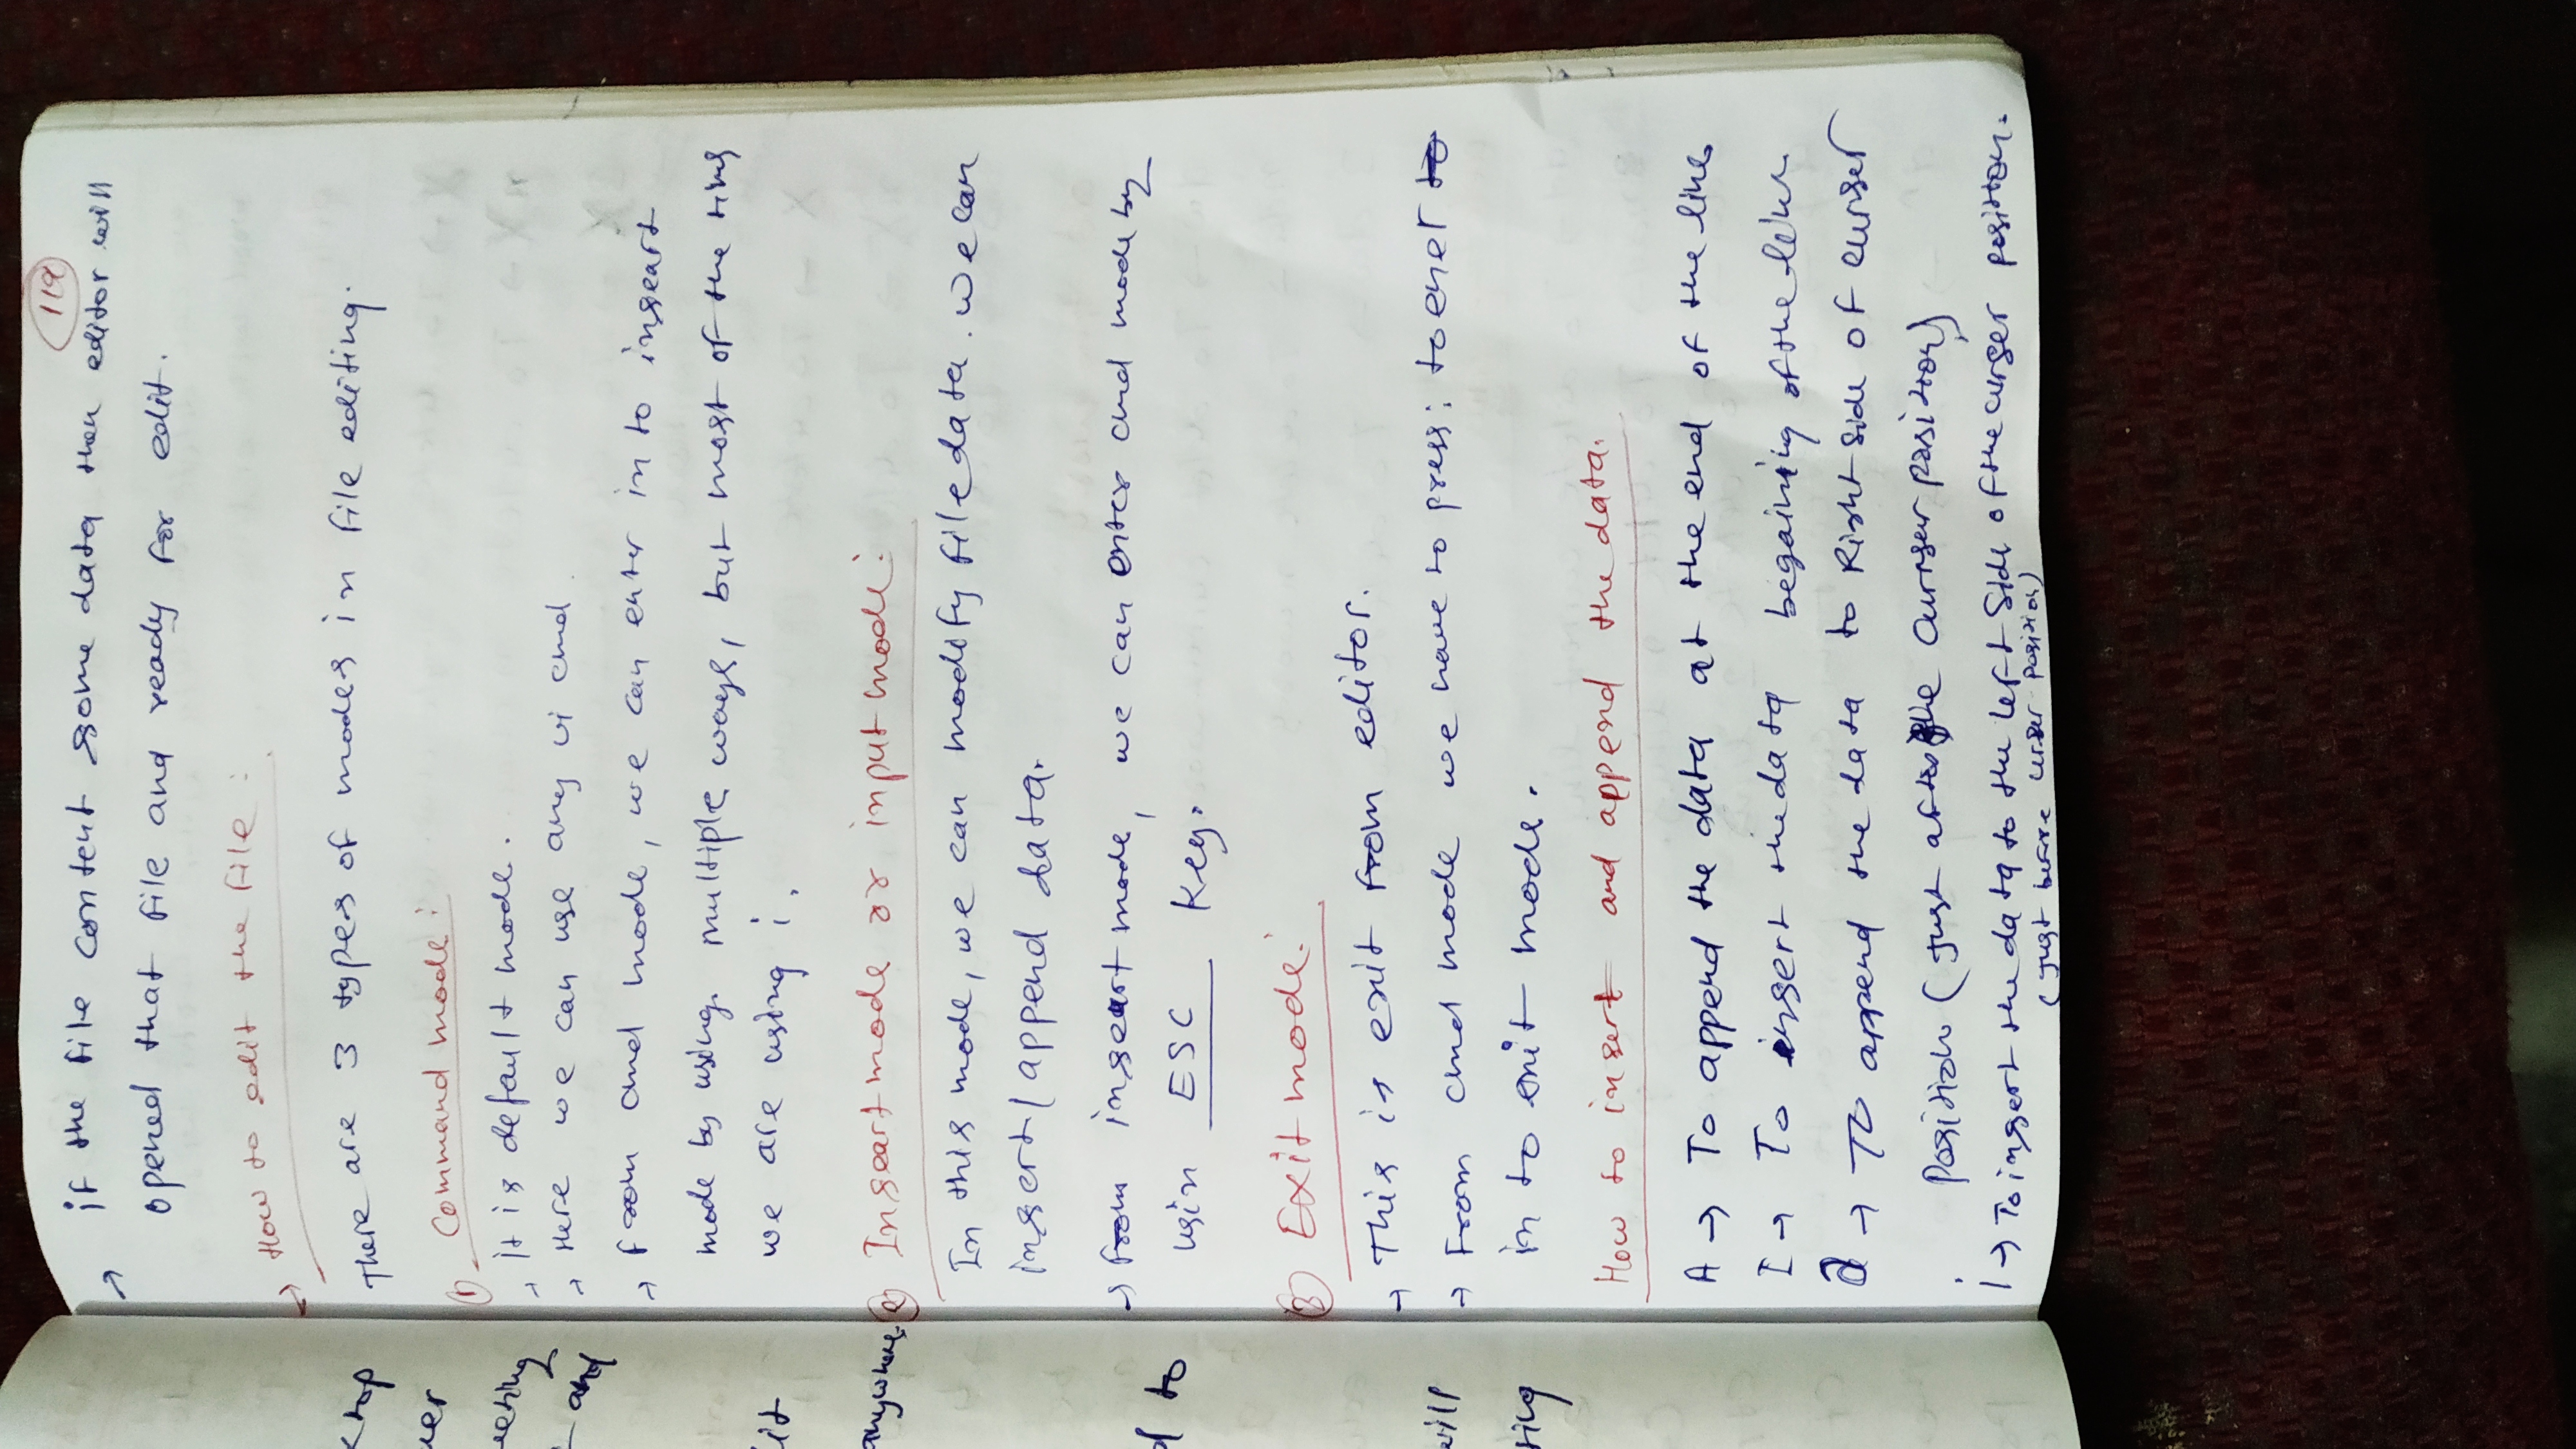 119
→ if the file content some data then editor will
opened that file and ready for edit.
→ How to edit the file :
There are 3 types of modes in file editing.
① Command mode :
→ it is default mode.
→ Here we can use any vi cmd
→ from cmd mode, we can enter in to inseart
mode by using multiple ways, but most of the time
we are using i.
② Inseart mode or input mode :
In this mode, we can modify file data. we can
insert/append data.
→ from inseart mode, we can enter cmd mode by
usin ESC Key.
③ Exit mode :
→ This is exit from editor.
→ From cmd mode we have to press : to ener to
in to exit mode.
How to insert and append the data.
A → To append the data at the end of the line
I → To insert the data begaining of the line
a → To append the data to Right side of curser
Position (Just after the currser position)
i → To insert the data to the left side of the curser position.
(Just before curser position)
ktop
ver
eeting
and
it
anywhere.
d to
will
ting